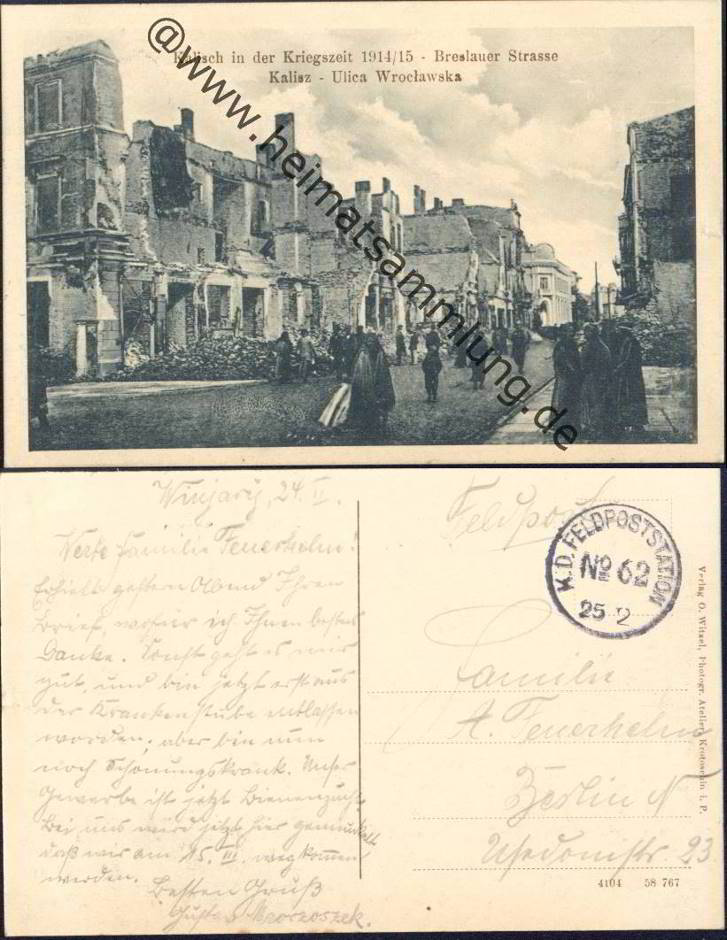 Kalisch in der Kriegszeit 1914/15 - Breslauer Strasse
Kalisz - Ulica Wrocławska
@www.heimatsammlung.de
24. II.
Werte Familie Feuerhelm!
Erhielt gestern Abend Ihren
Brief, wofür ich Ihnen besten
Danke. Sonst geht es mir
gut, und bin jetzt erst aus
der Krankenstube entlassen
worden, aber bin nun
noch Schonungskrank. Unser
Gewerbe ist jetzt Bienenzucht
Bei uns wird jetzt hier gemunkelt
daß wir am 15. III. wegkommen
werden.
Besten Gruß
Gustav
Feldpost
K.D. FELDPOSTSTATION
No 62
25 2
Familie
A. Feuerhelm
Berlin N
Usedomstr 23
Verlag O. Witzel, Photogr. Atelier, Krotoschin i. P.
4104 58 767